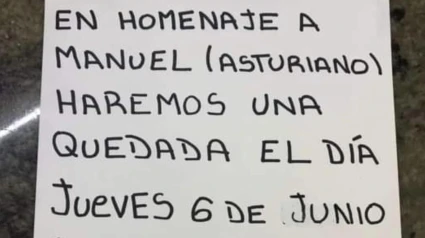 EN HOMENAJE A
MANUEL (ASTURIANO)
HAREMOS UNA
QUEDADA EL DÍA
JUEVES 6 DE JUNIO